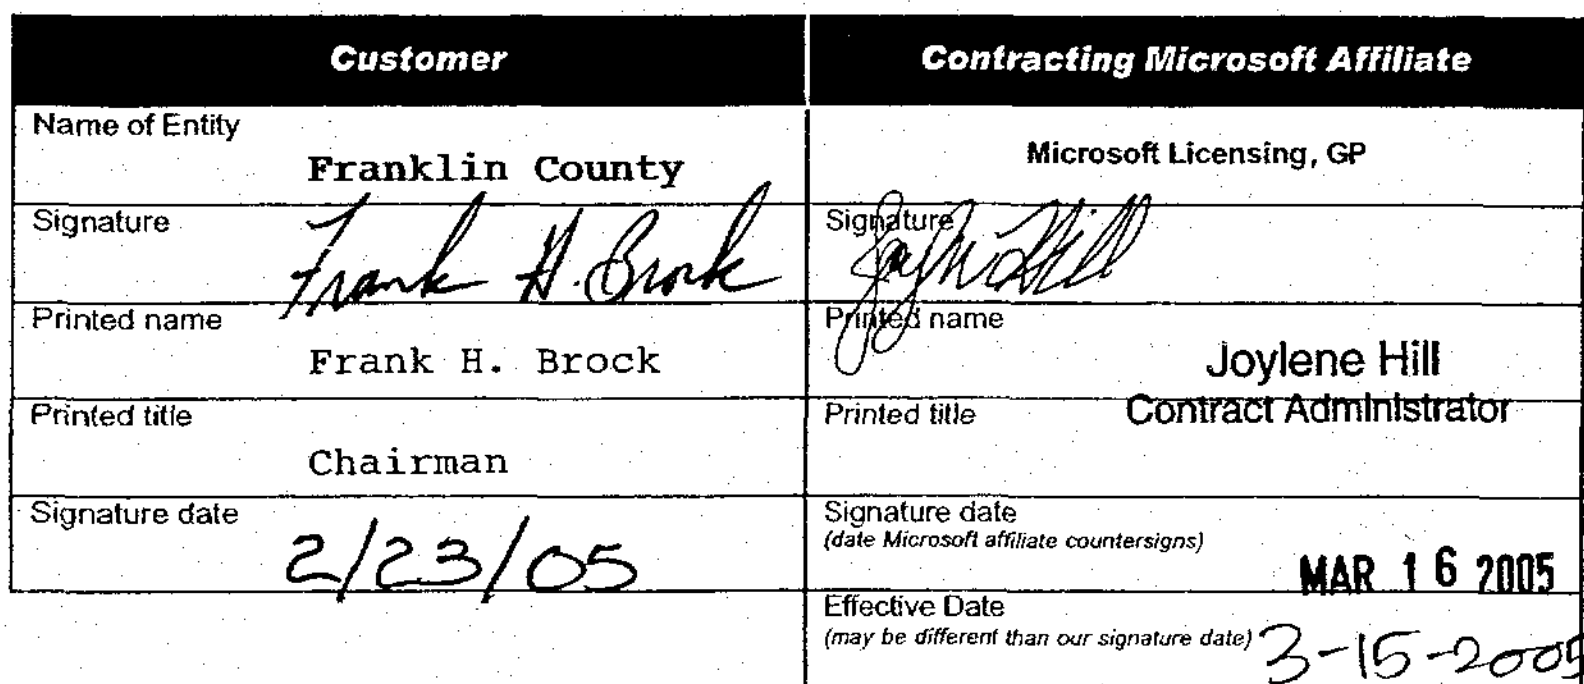 Customer
Contracting Microsoft Affiliate
Name of Entity
Franklin County
Microsoft Licensing, GP
Signature
Frank H. Brock
Signature
Joylene Hill
Printed name
Frank H. Brock
Printed name
Joylene Hill
Contract Administrator
Printed title
Chairman
Printed title
Signature date
2/23/05
Signature date
(date Microsoft affiliate countersigns)
MAR 16 2005
Effective Date
(may be different than our signature date)
3-15-2005